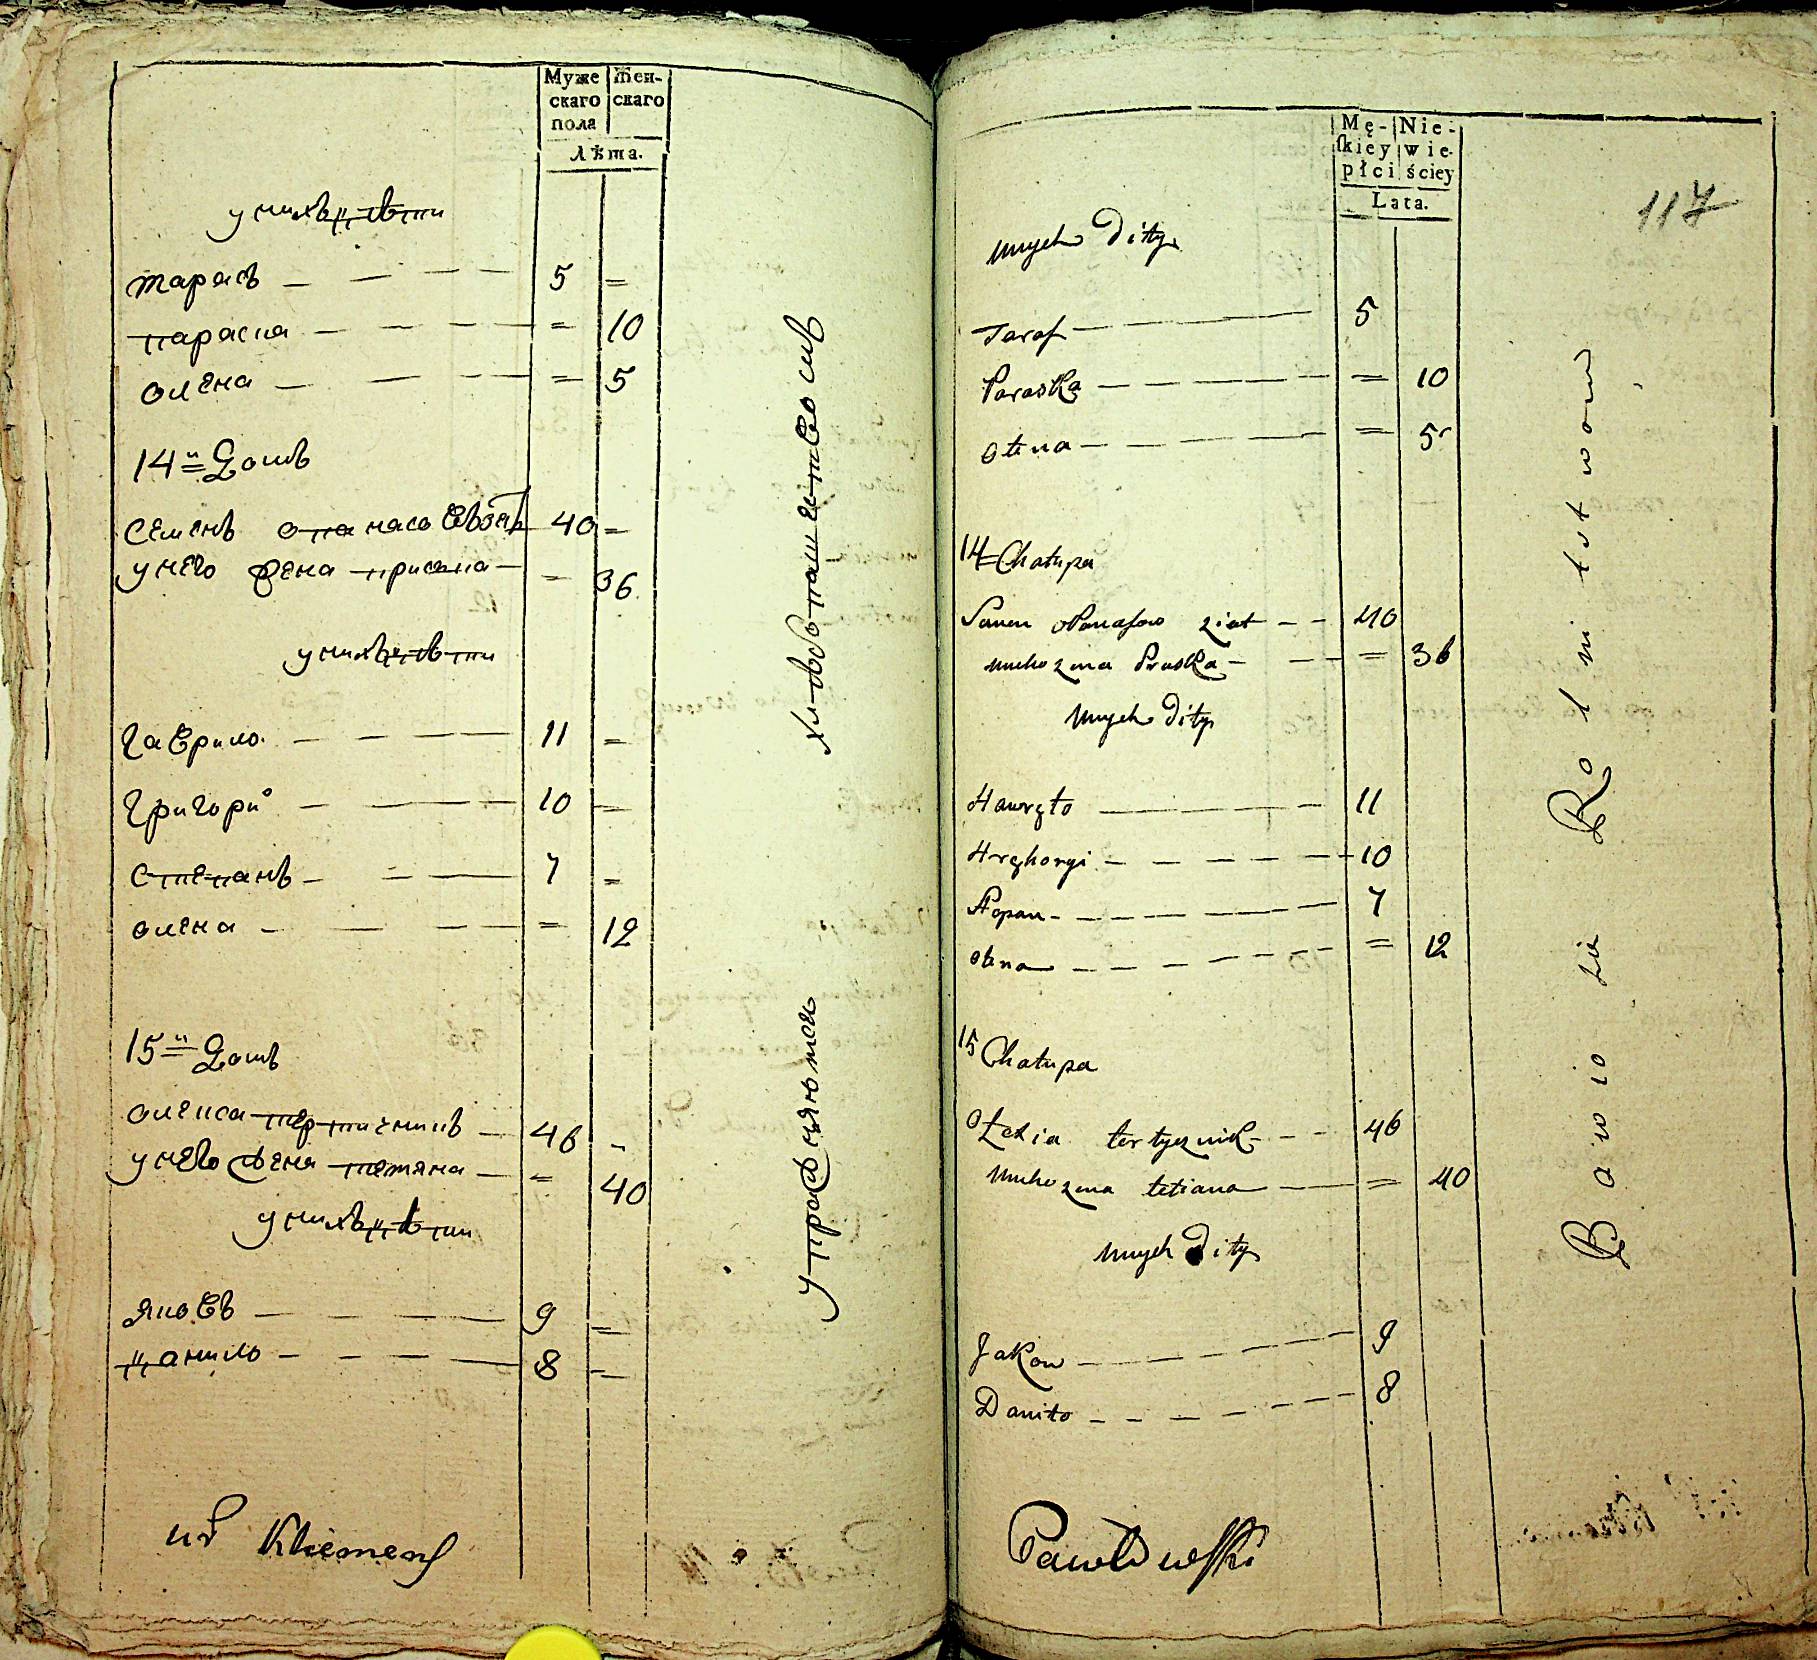 Муже
скаго
пола
Жен-
скаго
Лѣта.
у нихъ дѣти
тарасъ 5 =
параска = 10
олена = 5
14й домъ
Семенъ опанасовъ зять 40 =
у него женаприська = 36
у нихъ дѣти
гаврило 11 =
григорий 10 =
степанъ 7 =
олена = 12
15й домъ
олекса тертичникъ 46 =
у него жена тетяна = 40
у нихъ дѣти
яковъ 9 =
данило 8 =
хлѣбопашетвомъ
упражняютса
Kliemens
Mę-
skiey
płci
Nie-
wie-
ściey
Lata.
117
unych dity
Taras 5
Paraska = 10
Ołena = 5
14 Chałupa
Semen Opanasow ziat 40
uneho żena Pruska = 36
unych dity
Hawryło 11
Hryhoryi 10
Stepan 7
Ołena = 12
15 Chałupa
Ołexia tertycznik 46
uneho żena tetiana = 40
unych dity
Jakow 9
Daniło 8
Bawio sie Rolnitstwom
Pawłowski